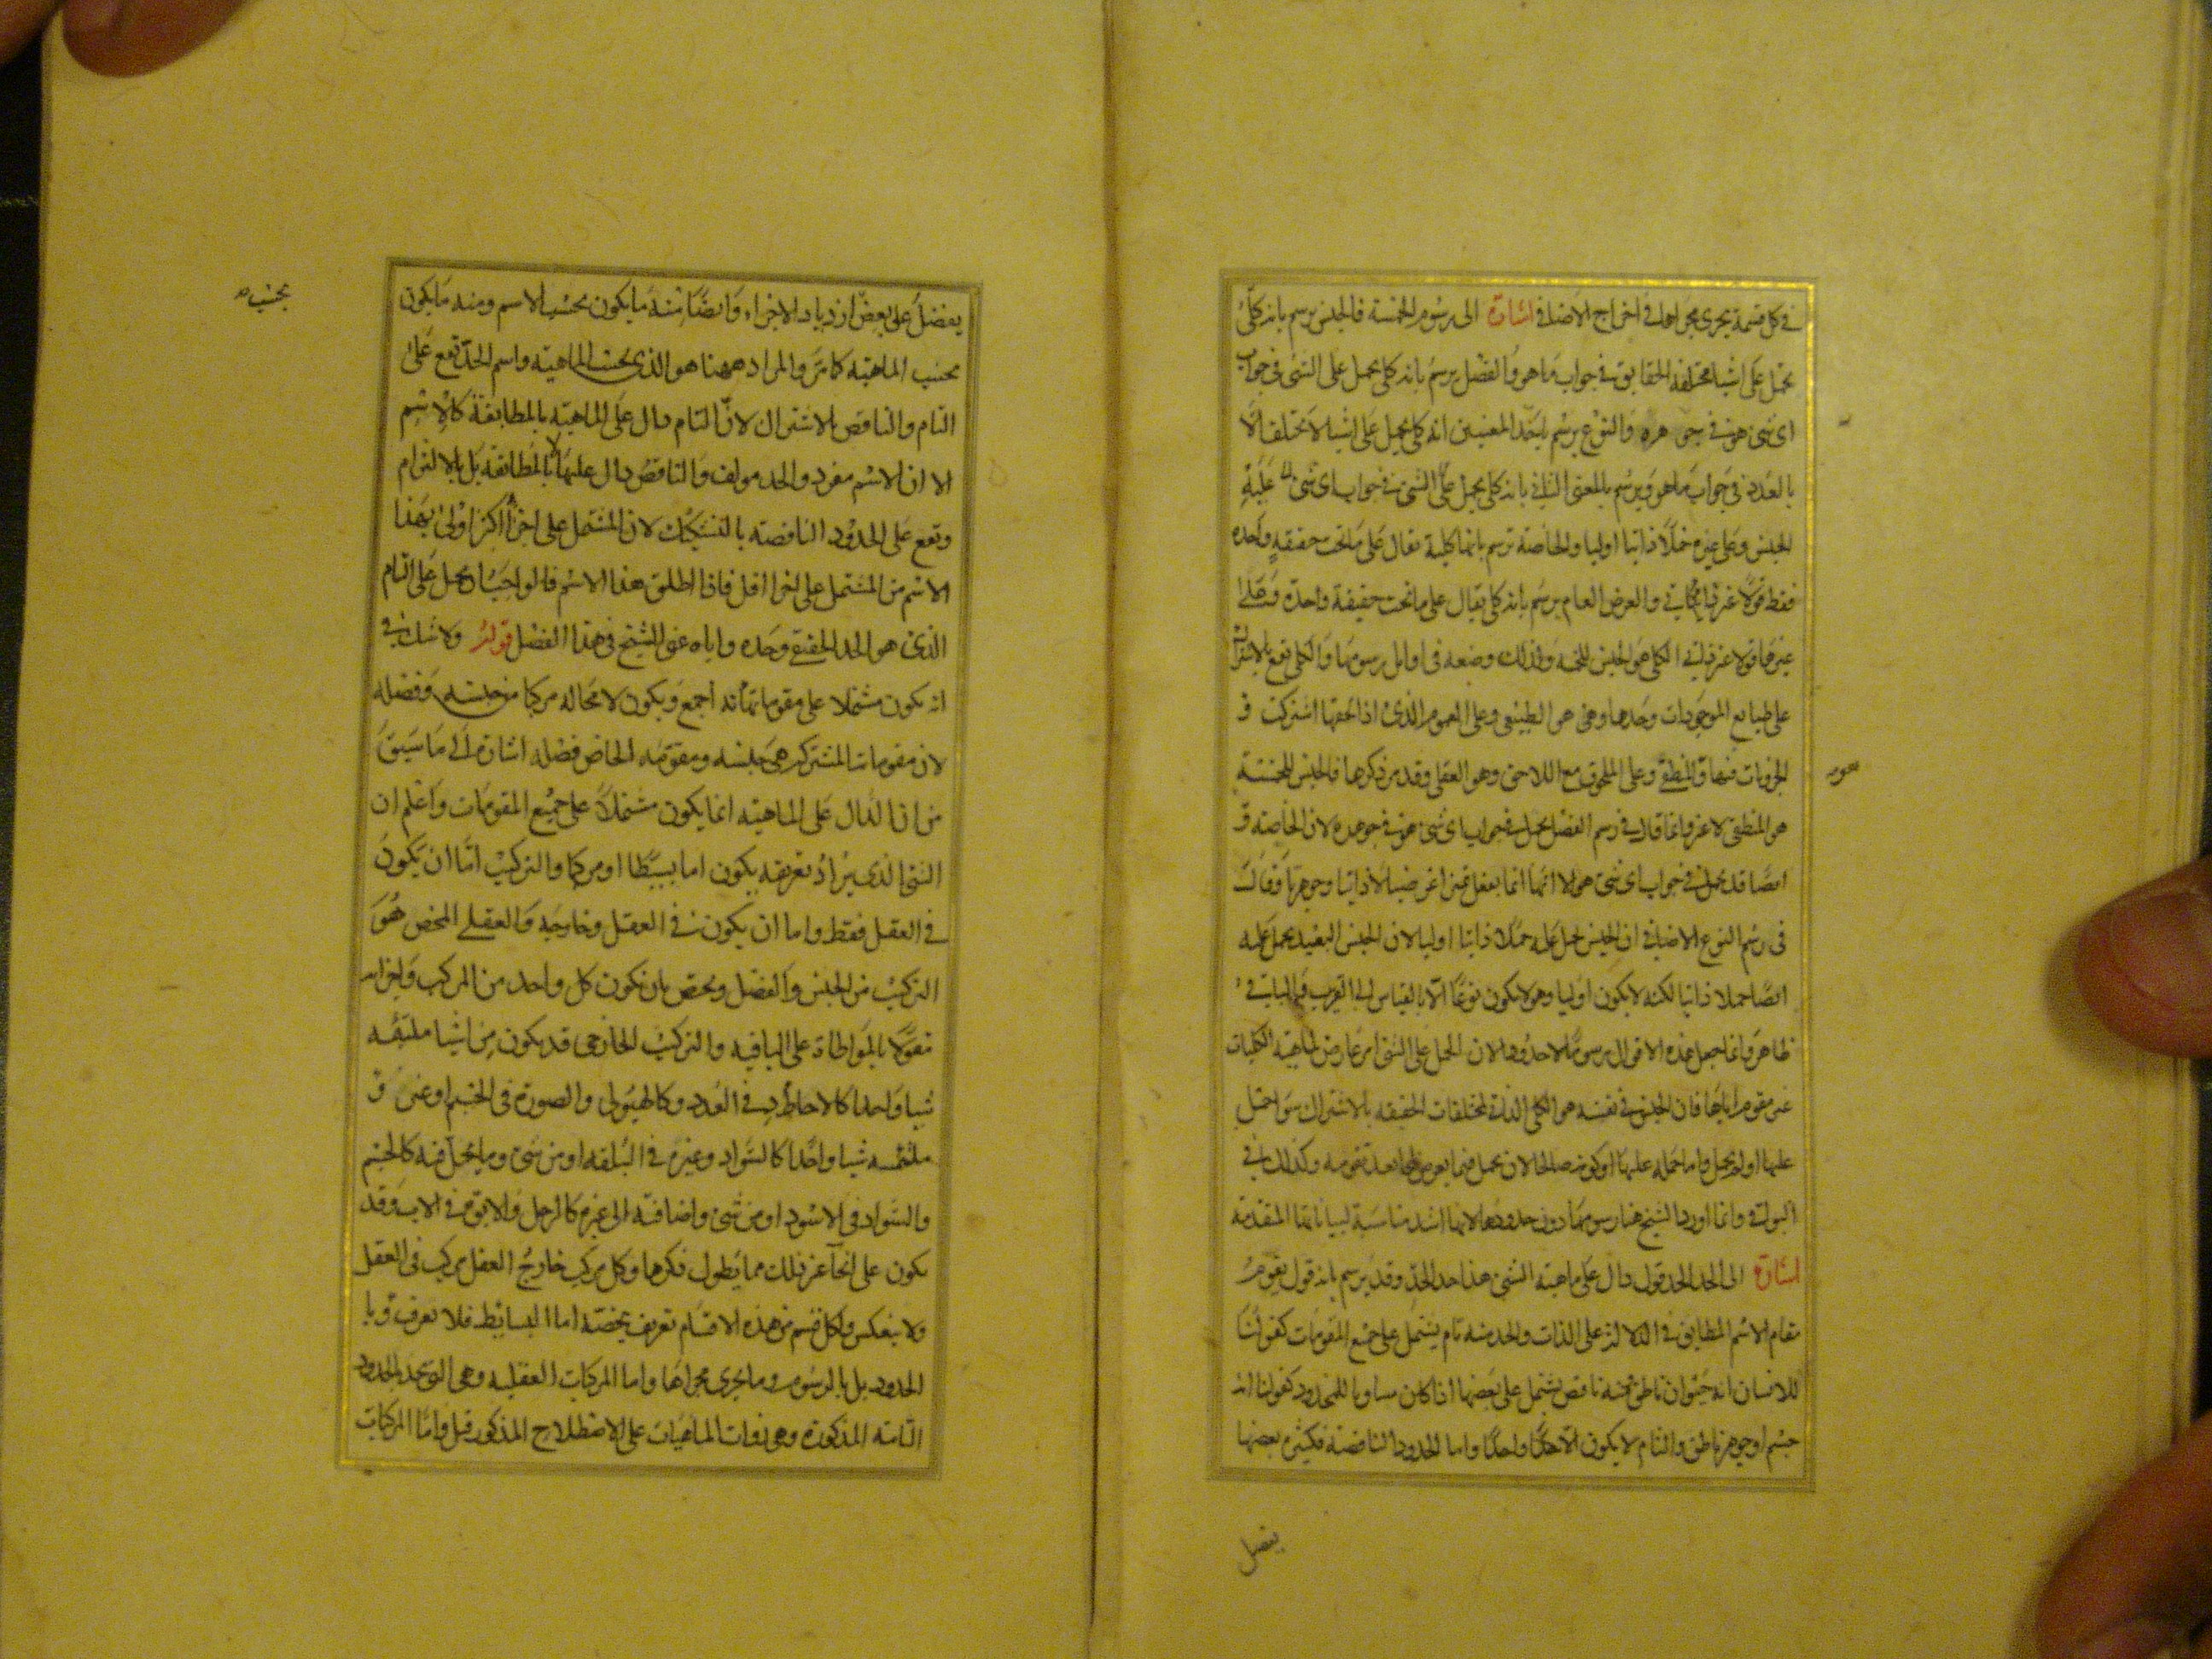 في كل قسمة يجري مجراها في اخراج الاضافي اشارة الى رسوم الخمسة فالجنس يرسم بانه كلي
يحمل على اشيا مختلفة الحقايق في جواب ما هو والفصل يرسم بانه كلي يحمل على الشي في جواب
اي شي هو في جوهره والنوع يرسم باحد المعنيين انه كلي يحمل على اشيا لا تختلف الا
بالعدد في جواب ما هو ويرسم بالمعنى الثاني بانه كلي يحمل عليه
الجنس وعلى غيره حملا ذاتيا اوليا والخاصة ترسم بانها كلية تقال على ما تحت حقيقة واحدة
فقط قولا غير ذاتي والعرض العام يرسم بانه كلي يقال على ما تحت حقيقة واحدة وعلى
غيرها قولا غير ذاتي الكلي هو الجنس للخمسة ولذلك وضعه في اوايل رسومها والكلي يقع بالاشتراك
على طبايع الموجودات وحدها وهي هو الطبيعي وعلى العموم الذي اذا لحقها اشتركت
الجزويات فيها وهو المنطقي وعلى الملحوق مع اللاحق وهو العقلي وقد مر ذكرها فالجنس للخمسة
هو المنطقي لا غير وانما قال في رسم الفصل يحمل في جواب اي شي هو في جوهره لان الخاصة
ايضا قد يحمل في جواب اي شي هو الا انها انما يفعل تميزا عرضيا لا ذاتيا وجوهريا وقال
في رسم النوع الاضافي ان الجنس يحمل عليه حملا ذاتيا اوليا لان الجنس البعيد يحمل عليه
ايضا حملا ذاتيا لكنه لا يكون اوليا وهو لا يكون نوعا الا بالقياس الى القريب والباقي
ظاهر وانما جعل هذه الاقوال رسوما لا حدودا لان الحمل على الشي امر عارض لماهية الكليات
غير مقوم اياها فان الجنس في نفسه هو الكلي الذاتي لمختلفات الحقيقة بالاشتراك سوا حمل
عليها او لم يحمل واما حمله عليها او كونه صالحا لان يحمل فمما يعرض لها بعد تقومه وكذلك في
البواقي وانما اورد الشيخ هنا رسومها دون حدودها لانها اشد مناسبة لبياناتها المقدمة
اشارة الى الحد الحد قول دال على ماهية الشي هذا حد الحد وقد يرسم بانه قول يقوم
مقام الاسم المطابق في الدلالة على الذات والحد منه تام يشتمل على جميع المقومات كقولنا
للانسان انه حيوان ناطق ومنه ناقص يشتمل على بعضها اذا كان مساويا للمحدود كقولنا انه
جسم او جوهر ناطق والتام لا يكون الا حدا واحدا واما الحدود الناقصة فكثيرة بعضها
يفضل
يفضل على بعض ازدياد الاجزاء وايضا منه ما يكون بحسب الاسم ومنه ما يكون
بحسب
بحسب الماهية كما مر والمراد ههنا هو الذي بحسب الماهية واسم الحد يقع على
التام والناقص بالاشتراك لان التام دال على الماهية بالمطابقة كالاسم
الا ان الاسم مفرد والحد مولف والناقص دال عليها لا بالمطابقة بل بالالتزام
ويقع على الحدود الناقصة بالتشكيك لان المشتمل على اجزا اكثر اولى بهذا
الاسم من المشتمل على اجزا اقل فاذا اطلق هذا الاسم فالواجب ان يحمل على التام
الذي هو الحد الحقيقي وحده واياه عنى الشيخ في هذا الفصل قوله ولا شك في
انه يكون مشتملا على مقوماته اجمع ويكون لا محالة مركبا من جنسه وفصله
لان مقوماته المشتركة هي جنسه ومقومه الخاص فصله اشارة الى ما سبق
من ان الدال على الماهية انما يكون مشتملا على جميع المقومات واعلم ان
الشي الذي يراد تعريفه يكون اما بسيطا او مركبا والتركيب اما ان يكون
في العقل فقط واما ان يكون في العقل وخارجه والعقلي المحض هو
التركيب من الجنس والفصل ويختص بان يكون كل واحد من المركب واجزايه
مقولا بالمواطاة على الباقية والتركيب الخارجي قد يكون من اشيا ملتيمة
شيا واحدا كالاحاد في العدد وكالهيولى والصورة في الجسم او غير
ملتيمة شيا واحدا كالسواد وغيره في البلقة او من شي وما يحل فيه كالجسم
والسواد في الاسود او من شي واضافة الى غيره كالرجل والابوة في الاب وقد
يكون على انحا غير ذلك مما يطول ذكرها وكل مركب خارج العقل مركب في العقل
ولا ينعكس ولكل قسم من هذه الاقسام تعريف يخصه اما البسايط فلا تعرف
الحدود بل بالرسوم وما يجري مجراها واما المركبات العقلية وهي التي تحد بالحدود
التامة المذكورة وهي ذوات الماهيات على الاصطلاح المذكور قبل واما المركبات